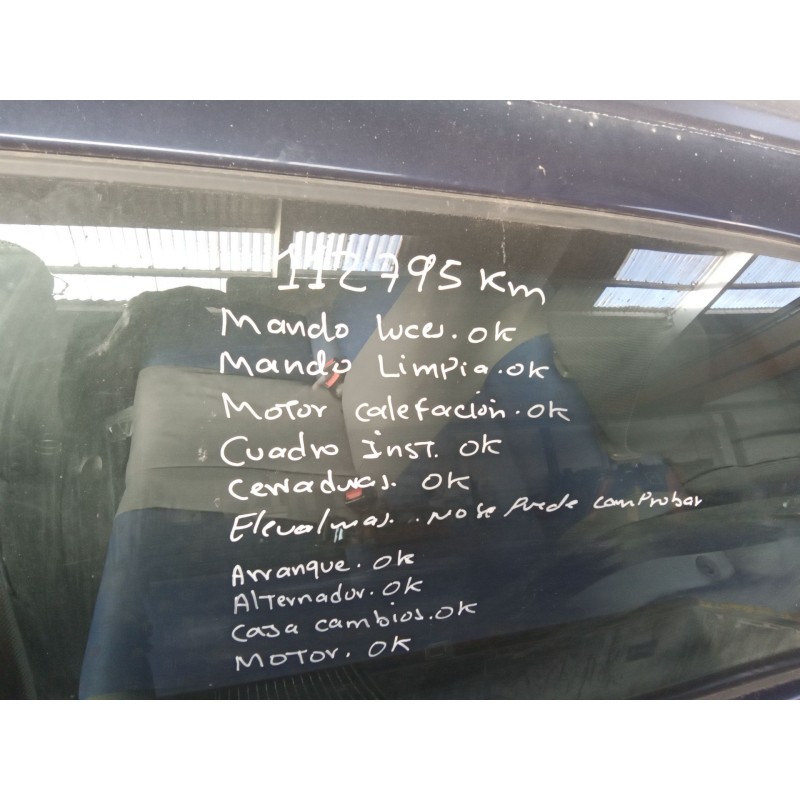 112795 Km
Mando luces. OK
Mando Limpia. OK
Motor calefacion. OK
Cuadro Inst. OK
Cerraduras. OK
Elevalunas. . No se Puede comProbar
Arranque. OK
Alternador. OK
Caja cambios. OK
MOTOR. OK